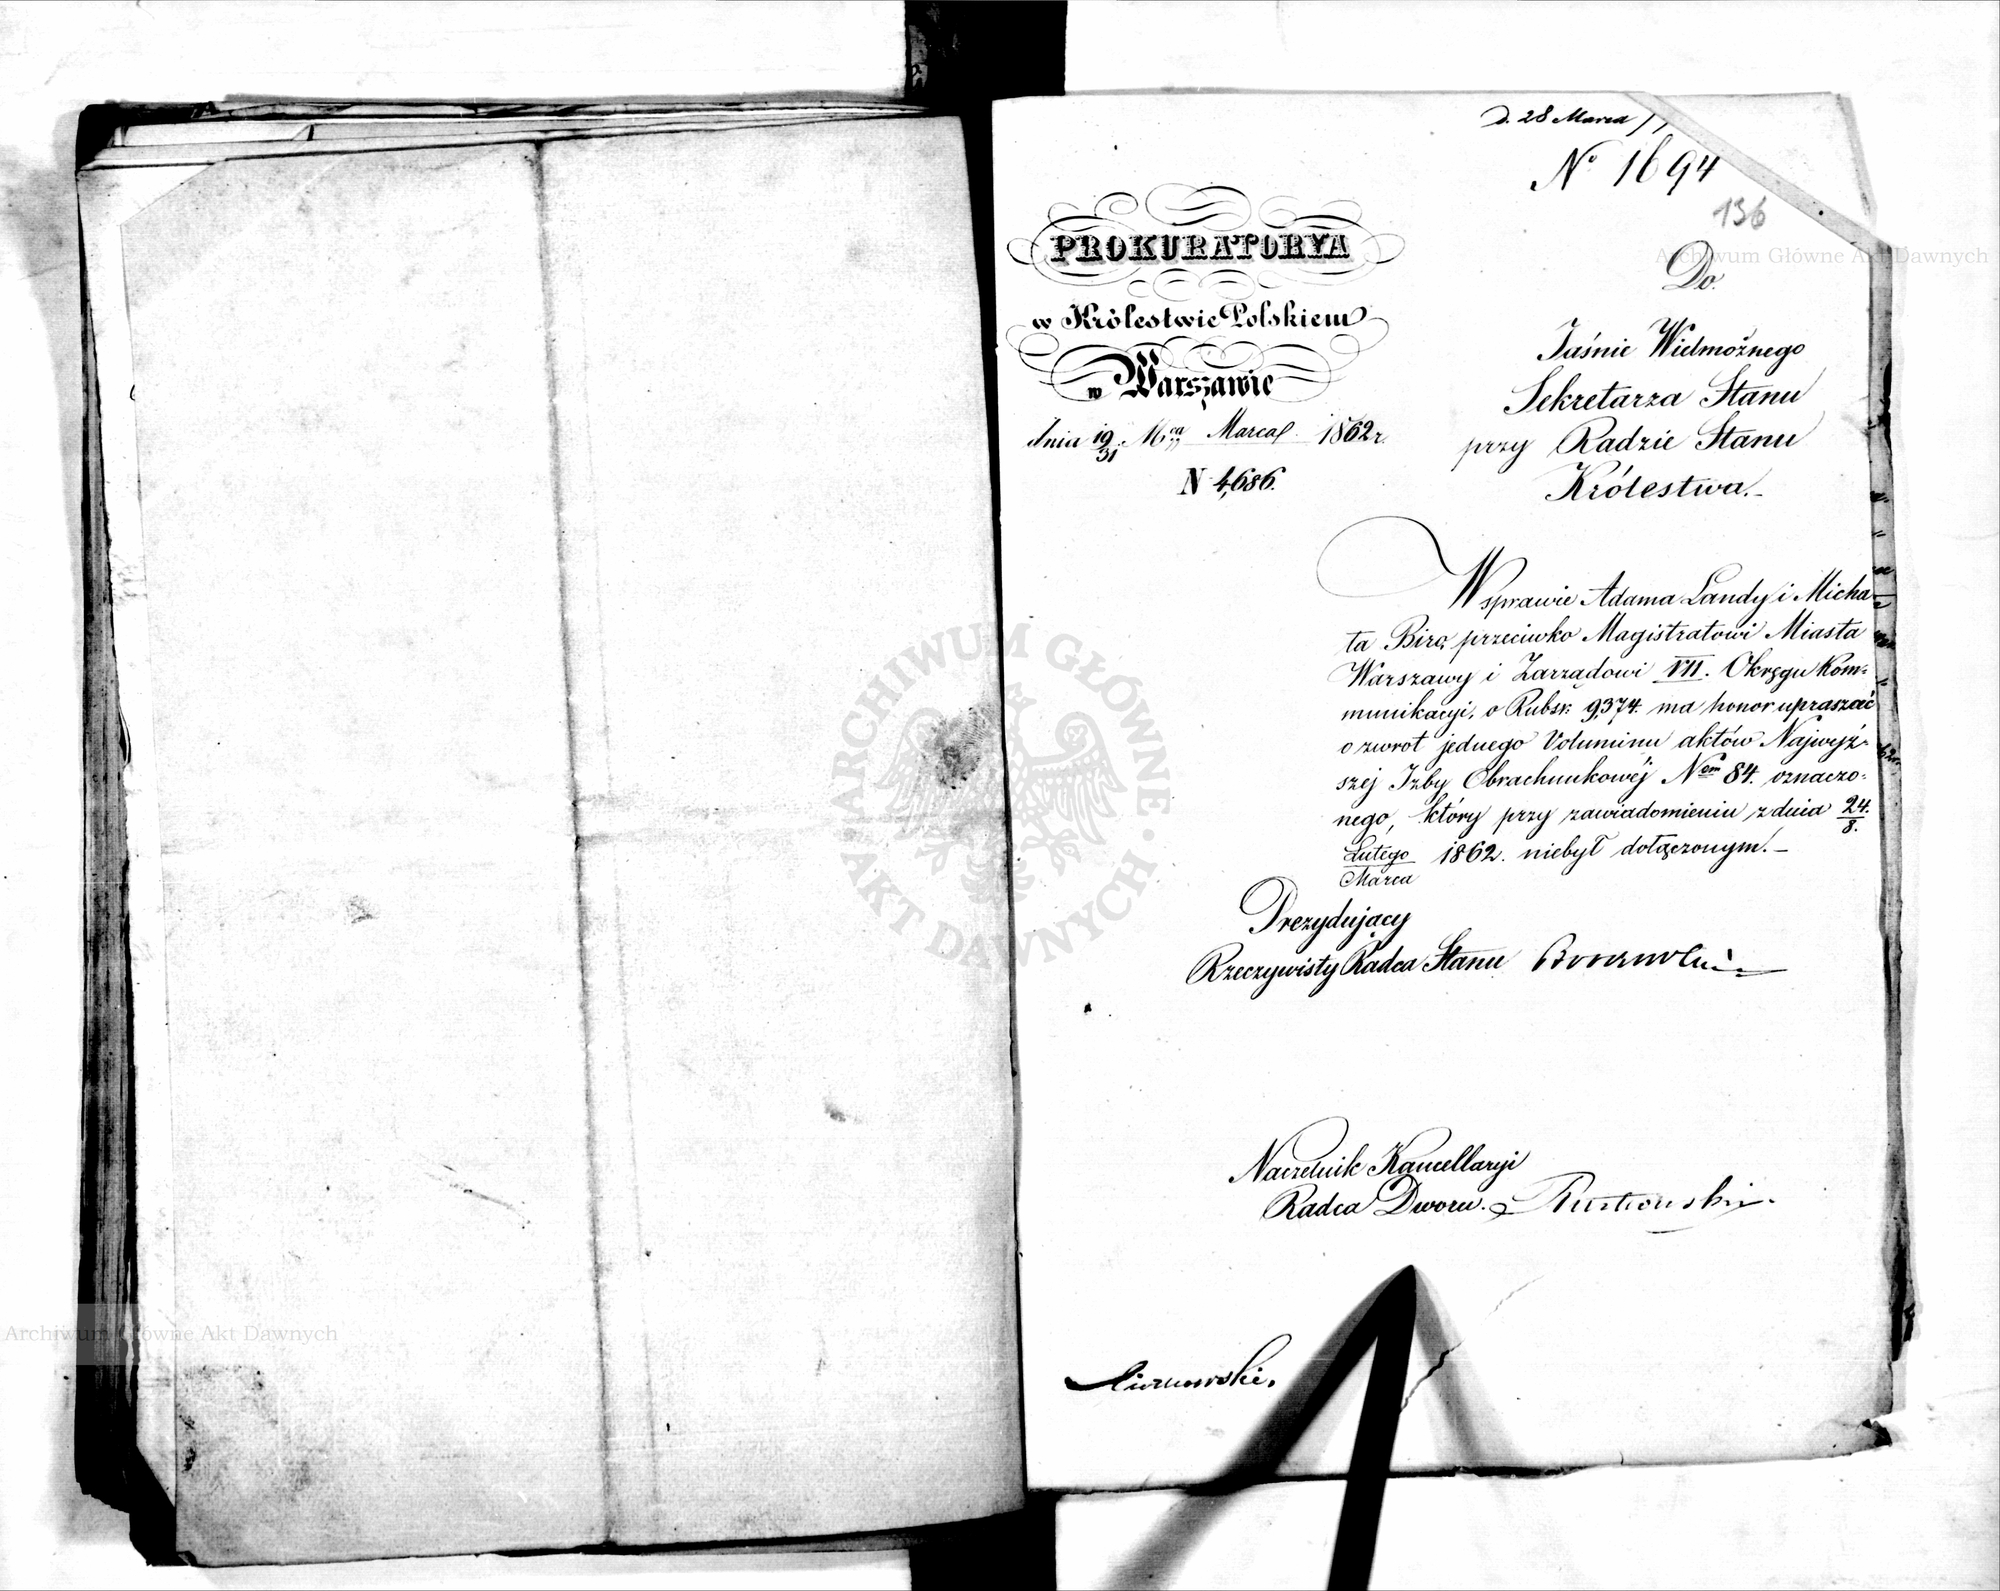 d. 28 Marca
No 1694
136
PROKURATORYA
w Królestwie Polskiem
w Warszawie
dnia 19/31 Mca Marca 1862 r.
N 4,686.
Do
Jaśnie Wielmożnego
Sekretarza Stanu
przy Radzie Stanu
Królestwa.
W sprawie Adama Landy i Micha
ła Biro przeciwko Magistratowi Miasta
Warszawy i Zarządowi VII. Okręgu Kom=
munikacyi, o Rubsr: 9,374. ma honor upraszać
o zwrot jednego Voluminu aktów Najwyż=
szej Izby Obrachunkowéj Nem 84. oznaczo=
nego, który przy zawiadomieniu z dnia 24./8.
Lutego/Marca 1862. niebył dołączonym.
Prezydujący
Rzeczywisty Radca Stanu
Naczelnik Kancellaryi
Radca Dworu.
ARCHIWUM GŁÓWNE AKT DAWNYCH
Archiwum Główne Akt Dawnych
Archiwum Główne Akt Dawnych